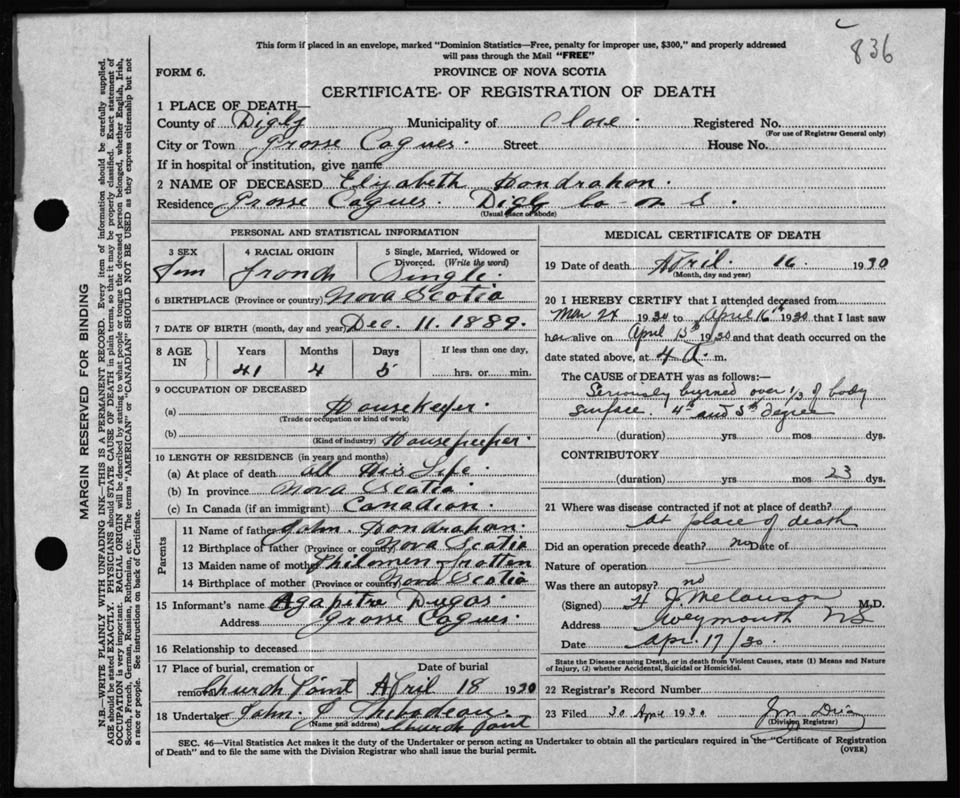 836
This form if placed in an envelope, marked "Dominion Statistics—Free, penalty for improper use, $300," and properly addressed
will pass through the Mail "FREE"
FORM 6.
PROVINCE OF NOVA SCOTIA
CERTIFICATE OF REGISTRATION OF DEATH
1 PLACE OF DEATH—
County of Digby Municipality of Clare. Registered No.
(For use of Registrar General only)
City or Town Grosse Coques. Street House No.
If in hospital or institution, give name
2 NAME OF DECEASED Elizabeth Hondrahon.
Residence Grosse Coques. Digby Co-on S.
(Usual place of abode)
PERSONAL AND STATISTICAL INFORMATION
3 SEX Fem
4 RACIAL ORIGIN French
5 Single, Married, Widowed or Divorced. (Write the word) Single.
6 BIRTHPLACE (Province or country) Nova Scotia
7 DATE OF BIRTH (month, day and year) Dec. 11. 1889.
8 AGE IN Years Months Days If less than one day,
41 4 5 hrs. or min.
9 OCCUPATION OF DECEASED
(a) Housekeeper.
(Trade or occupation or kind of work)
(b) Housekeeper.
(Kind of industry)
10 LENGTH OF RESIDENCE (in years and months)
(a) At place of death all His Life.
(b) In province Nova Scotia.
(c) In Canada (if an immigrant) Canadian.
Parents
11 Name of father John. Hondrahan.
12 Birthplace of father (Province or country) Nova Scotia
13 Maiden name of mother Philomen
14 Birthplace of mother (Province or country) Nova Scotia
15 Informant's name Agapitre Dugas.
Address Grosse Coques.
16 Relationship to deceased
17 Place of burial, cremation or removal Church Point
Date of burial April 18 1930
18 Undertaker John. J. Thibodeau.
(Name and address) Church Point
MEDICAL CERTIFICATE OF DEATH
19 Date of death April. 16. 1930
(Month, day and year)
20 I HEREBY CERTIFY that I attended deceased from
Mar 24 1930 to April 16th 1930 that I last saw
her alive on April 15th 1930 and that death occurred on the
date stated above, at 4 A. m.
The CAUSE OF DEATH was as follows:—
Seriously burned over 1/3 of body
surface. 4th and 5th degree
(duration) yrs mos dys.
CONTRIBUTORY
(duration) yrs mos 23 dys.
21 Where was disease contracted if not at place of death?
At place of death
Did an operation precede death? no Date of
Nature of operation —
Was there an autopsy? no
(Signed) H. J. Melanson M.D.
Address Weymouth NS
Date Apr. 17/30.
State the Disease causing Death, or in death from Violent Causes, state (1) Means and Nature
of Injury, (2) whether Accidental, Suicidal or Homicidal.
22 Registrar's Record Number
23 Filed 30 Apr 1930
(Division Registrar)
SEC. 46—Vital Statistics Act makes it the duty of the Undertaker or person acting as Undertaker to obtain all the particulars required in the "Certificate of Registration
of Death" and to file the same with the Division Registrar who shall issue the burial permit.
(OVER)
MARGIN RESERVED FOR BINDING
N.B.—WRITE PLAINLY WITH UNFADING INK—THIS IS A PERMANENT RECORD. Every item of information should be carefully supplied.
AGE should be stated EXACTLY. PHYSICIANS should STATE CAUSE OF DEATH in plain terms, so that it may be properly classified. Exact statement of
OCCUPATION is very important. RACIAL ORIGIN will be described by stating to what people or tongue the deceased person belonged, whether English, Irish,
Scotch, French, German, Russian, Ruthenian, etc. The terms "AMERICAN" or "CANADIAN" SHOULD NOT BE USED as they express citizenship but not
a race or people. See instructions on back of Certificate.